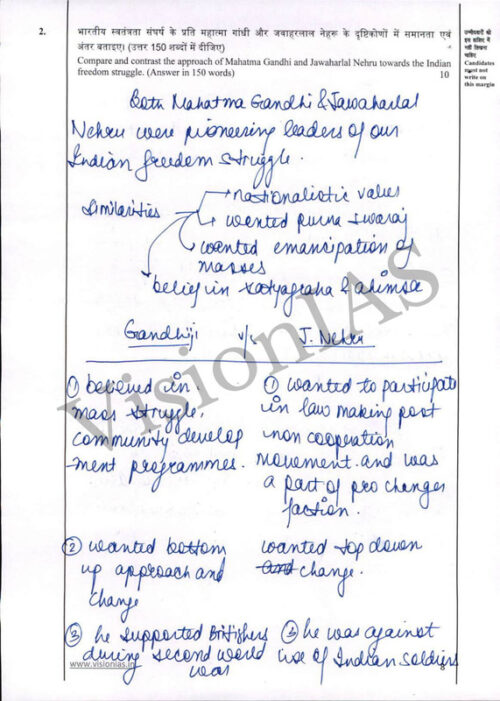 2.
भारतीय स्वतंत्रता संघर्ष के प्रति महात्मा गांधी और जवाहरलाल नेहरू के दृष्टिकोणों में समानता एवं
अंतर बताइए। (उत्तर 150 शब्दों में दीजिए)
Compare and contrast the approach of Mahatma Gandhi and Jawaharlal Nehru towards the Indian
freedom struggle. (Answer in 150 words)
10
उम्मीदवारों को
इस हाशिए में
नहीं लिखना
चाहिए
Candidates
must not
write on
this margin
Both Mahatma Gandhi & Jawaharlal
Nehru were pioneering leaders of our
Indian freedom struggle.
Similarities
nationalistic values
wanted purna swaraj
wanted emancipation of
masses
belief in satyagraha & ahimsa
Gandhiji v/s J. Nehru
① believed in
mass struggle,
community develop
-ment programmes.
① wanted to participate
in law making post
non cooperation
movement and was
a part of pro changer
faction.
② wanted bottom
up approach and
change
wanted top down
change.
③ he supported Britishers
during second world
war
③ he was against
use of Indian soldiers
www.visionias.in
VisionIAS